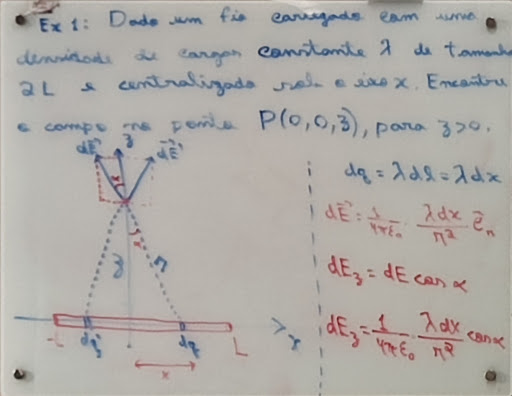 Ex 1: Dado um fio carregado com uma
densidade de cargas constante λ de tamanho
2L e centralizado sob o eixo x. Encontre
o campo no ponto P(0,0,z), para z>0.
dE⃗' z dE⃗'
α
α
z r
-L dq' dq L x
x
dq = λdl = λdx
dE⃗ = 1/4πε₀ · λdx/r² e⃗ᵣ
dE_z = dE cos α
dE_z = 1/4πε₀ · λdx/r² cos α